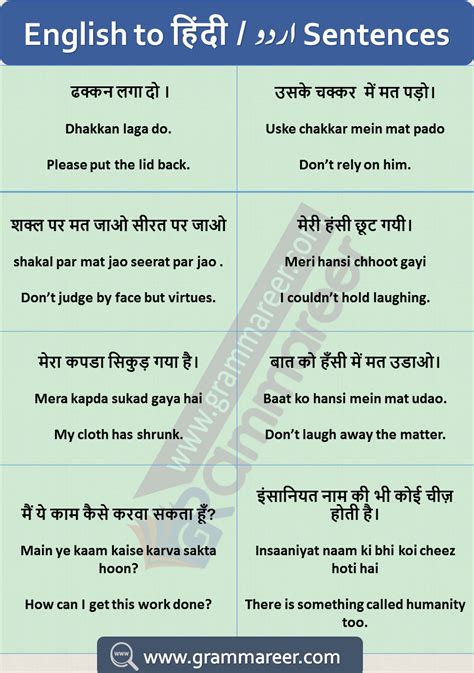 English to हिंदी / اردو Sentences
ढक्कन लगा दो ।
Dhakkan laga do.
Please put the lid back.
उसके चक्कर में मत पड़ो।
Uske chakkar mein mat pado
Don't rely on him.
शक्ल पर मत जाओ सीरत पर जाओ
shakal par mat jao seerat par jao .
Don't judge by face but virtues.
मेरी हंसी छूट गयी।
Meri hansi chhoot gayi
I couldn't hold laughing.
मेरा कपडा सिकुड़ गया है।
Mera kapda sukad gaya hai
My cloth has shrunk.
बात को हँसी में मत उडाओ।
Baat ko hansi mein mat udao.
Don't laugh away the matter.
मैं ये काम कैसे करवा सकता हूँ?
Main ye kaam kaise karva sakta
hoon?
How can I get this work done?
इंसानियत नाम की भी कोई चीज़
होती है।
Insaaniyat naam ki bhi koi cheez
hoti hai
There is something called humanity
too.
www.grammareer.com
GRammareer
www.grammareer.com